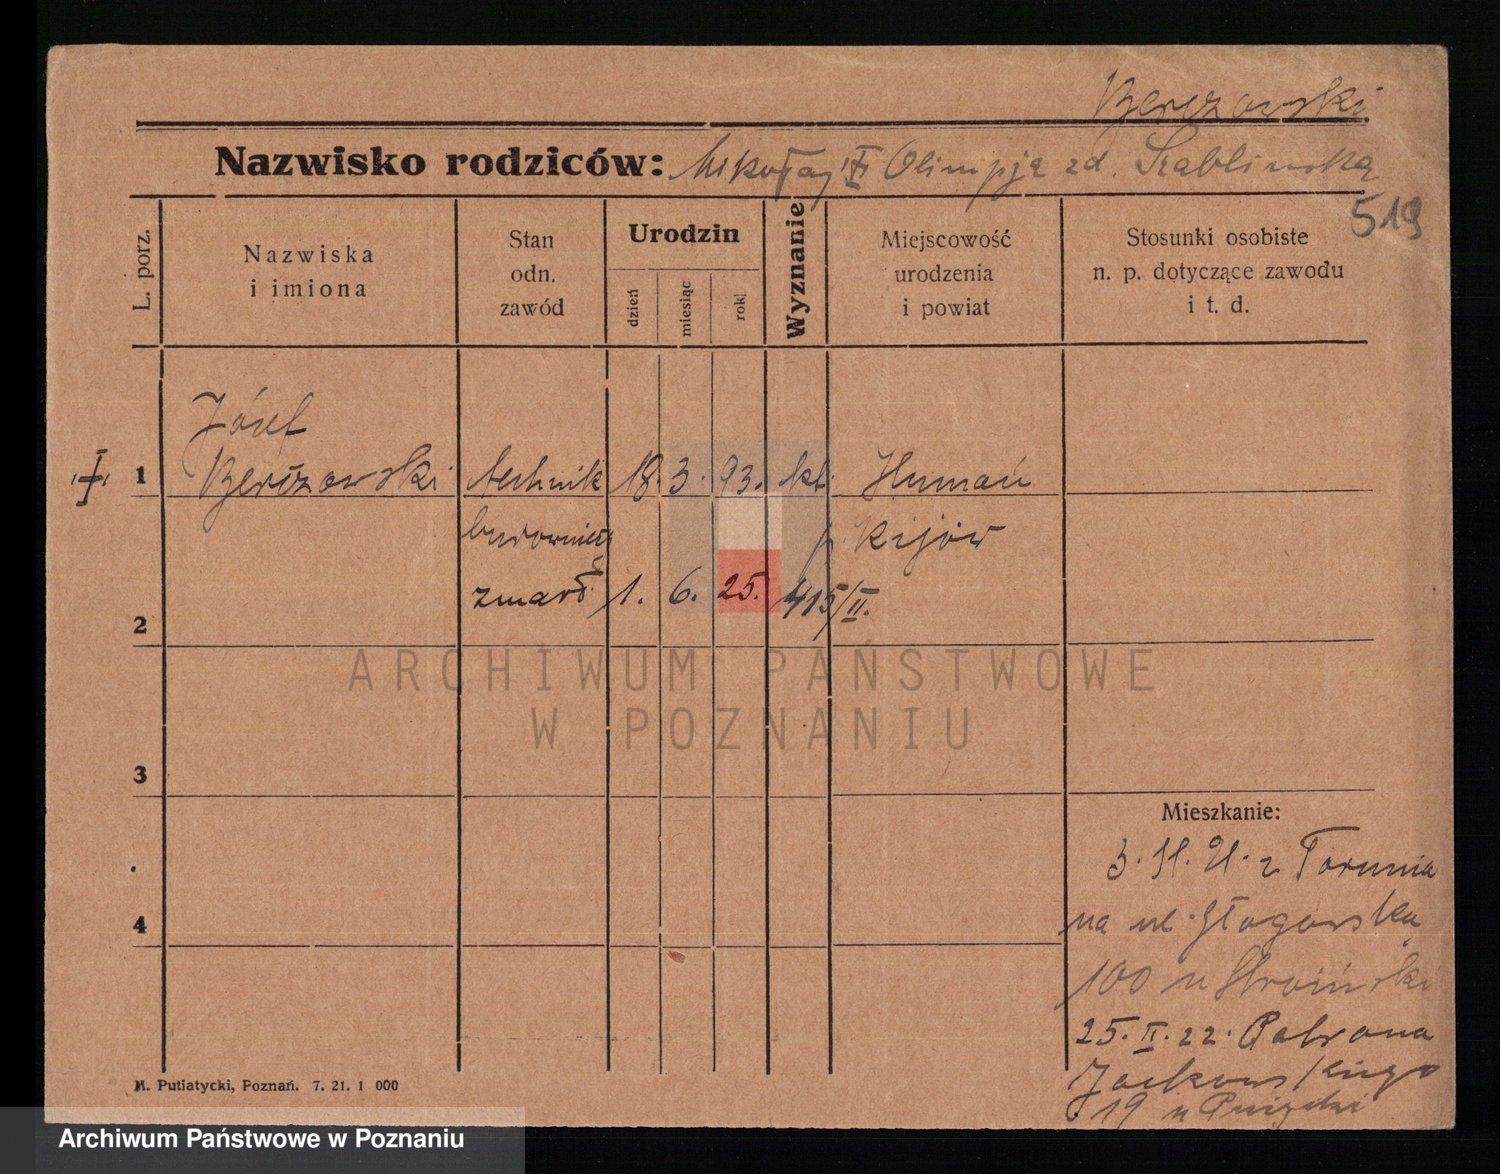 Berezowski
Nazwisko rodziców: Mikołaj Olimpja zd. Szablińska
519
L. porz.
Nazwiska
i imiona
Stan
odn.
zawód
Urodzin
dzień
miesiąc
rok
Wyznanie
Miejscowość
urodzenia
i powiat
Stosunki osobiste
n. p. dotyczące zawodu
i t. d.
Józef
1 Berezowski technik 18. 3. 93. kt. Humań
p. Kijów
zmarł 1. 6. 25. 415/II.
2
ARCHIWUM PAŃSTWOWE
W POZNANIU
3
Mieszkanie:
z Torunia
4
na ul. Głogowska
100 u
25. II. 22.
Jackowskiego
19 u
M. Putiatycki, Poznań. 7. 21. 1 000
Archiwum Państwowe w Poznaniu